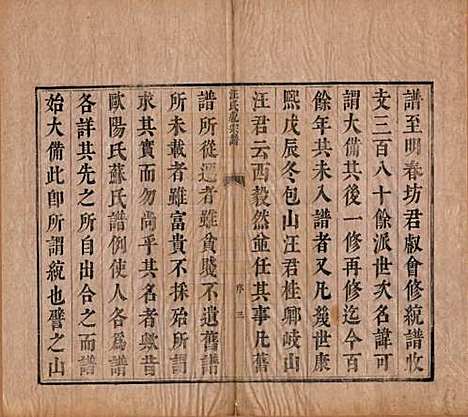 譜至明春坊君叡會修統譜收
支三百八十餘派世次名諱可
謂大備其後一修再修迄今百
餘年其未入譜者又凡幾世康
熙戊辰冬包山汪君桂卿岐山
汪君云西毅然並任其事凡舊
汪氏統宗譜
序
三
譜所從逕者雖貧賤不遺舊譜
所未載者雖富貴不採殆所謂
求其實而勿尚乎其名者與昔
歐陽氏蘇氏譜例使人各為譜
各詳其先之所自出合之而譜
始大備此卽所謂統也譬之山